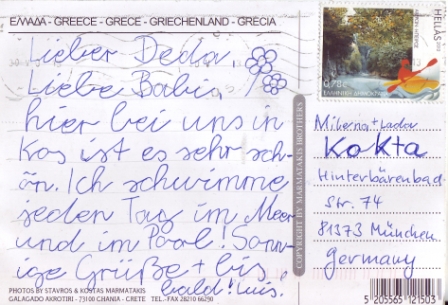 ΕΛΛΑΔΑ - GREECE - GRECE - GRIECHENLAND - GRECIA
Lieber Deda,
Liebe Babi,
hier bei uns in
Kos ist es sehr sch-
ön. Ich schwimme
jeden Tag im Meer
und im Pool! Sonn-
ige Grüße + bis
bald!
PHOTOS BY STAVROS & KOSTAS MARMATAKIS
GALAGADO AKROTIRI - 73100 CHANIA - CRETE TEL.-FAX 28210 66290
COPYRIGHT BY MARMATAKIS BROTHERS
HELLAS
0,78€
ΕΛΛΗΝΙΚΗ ΔΗΜΟΚΡΑΤΙΑ
Kokta
Hinterbärenbad-
Str. 74
81373 München
Germany
5 205565 121503